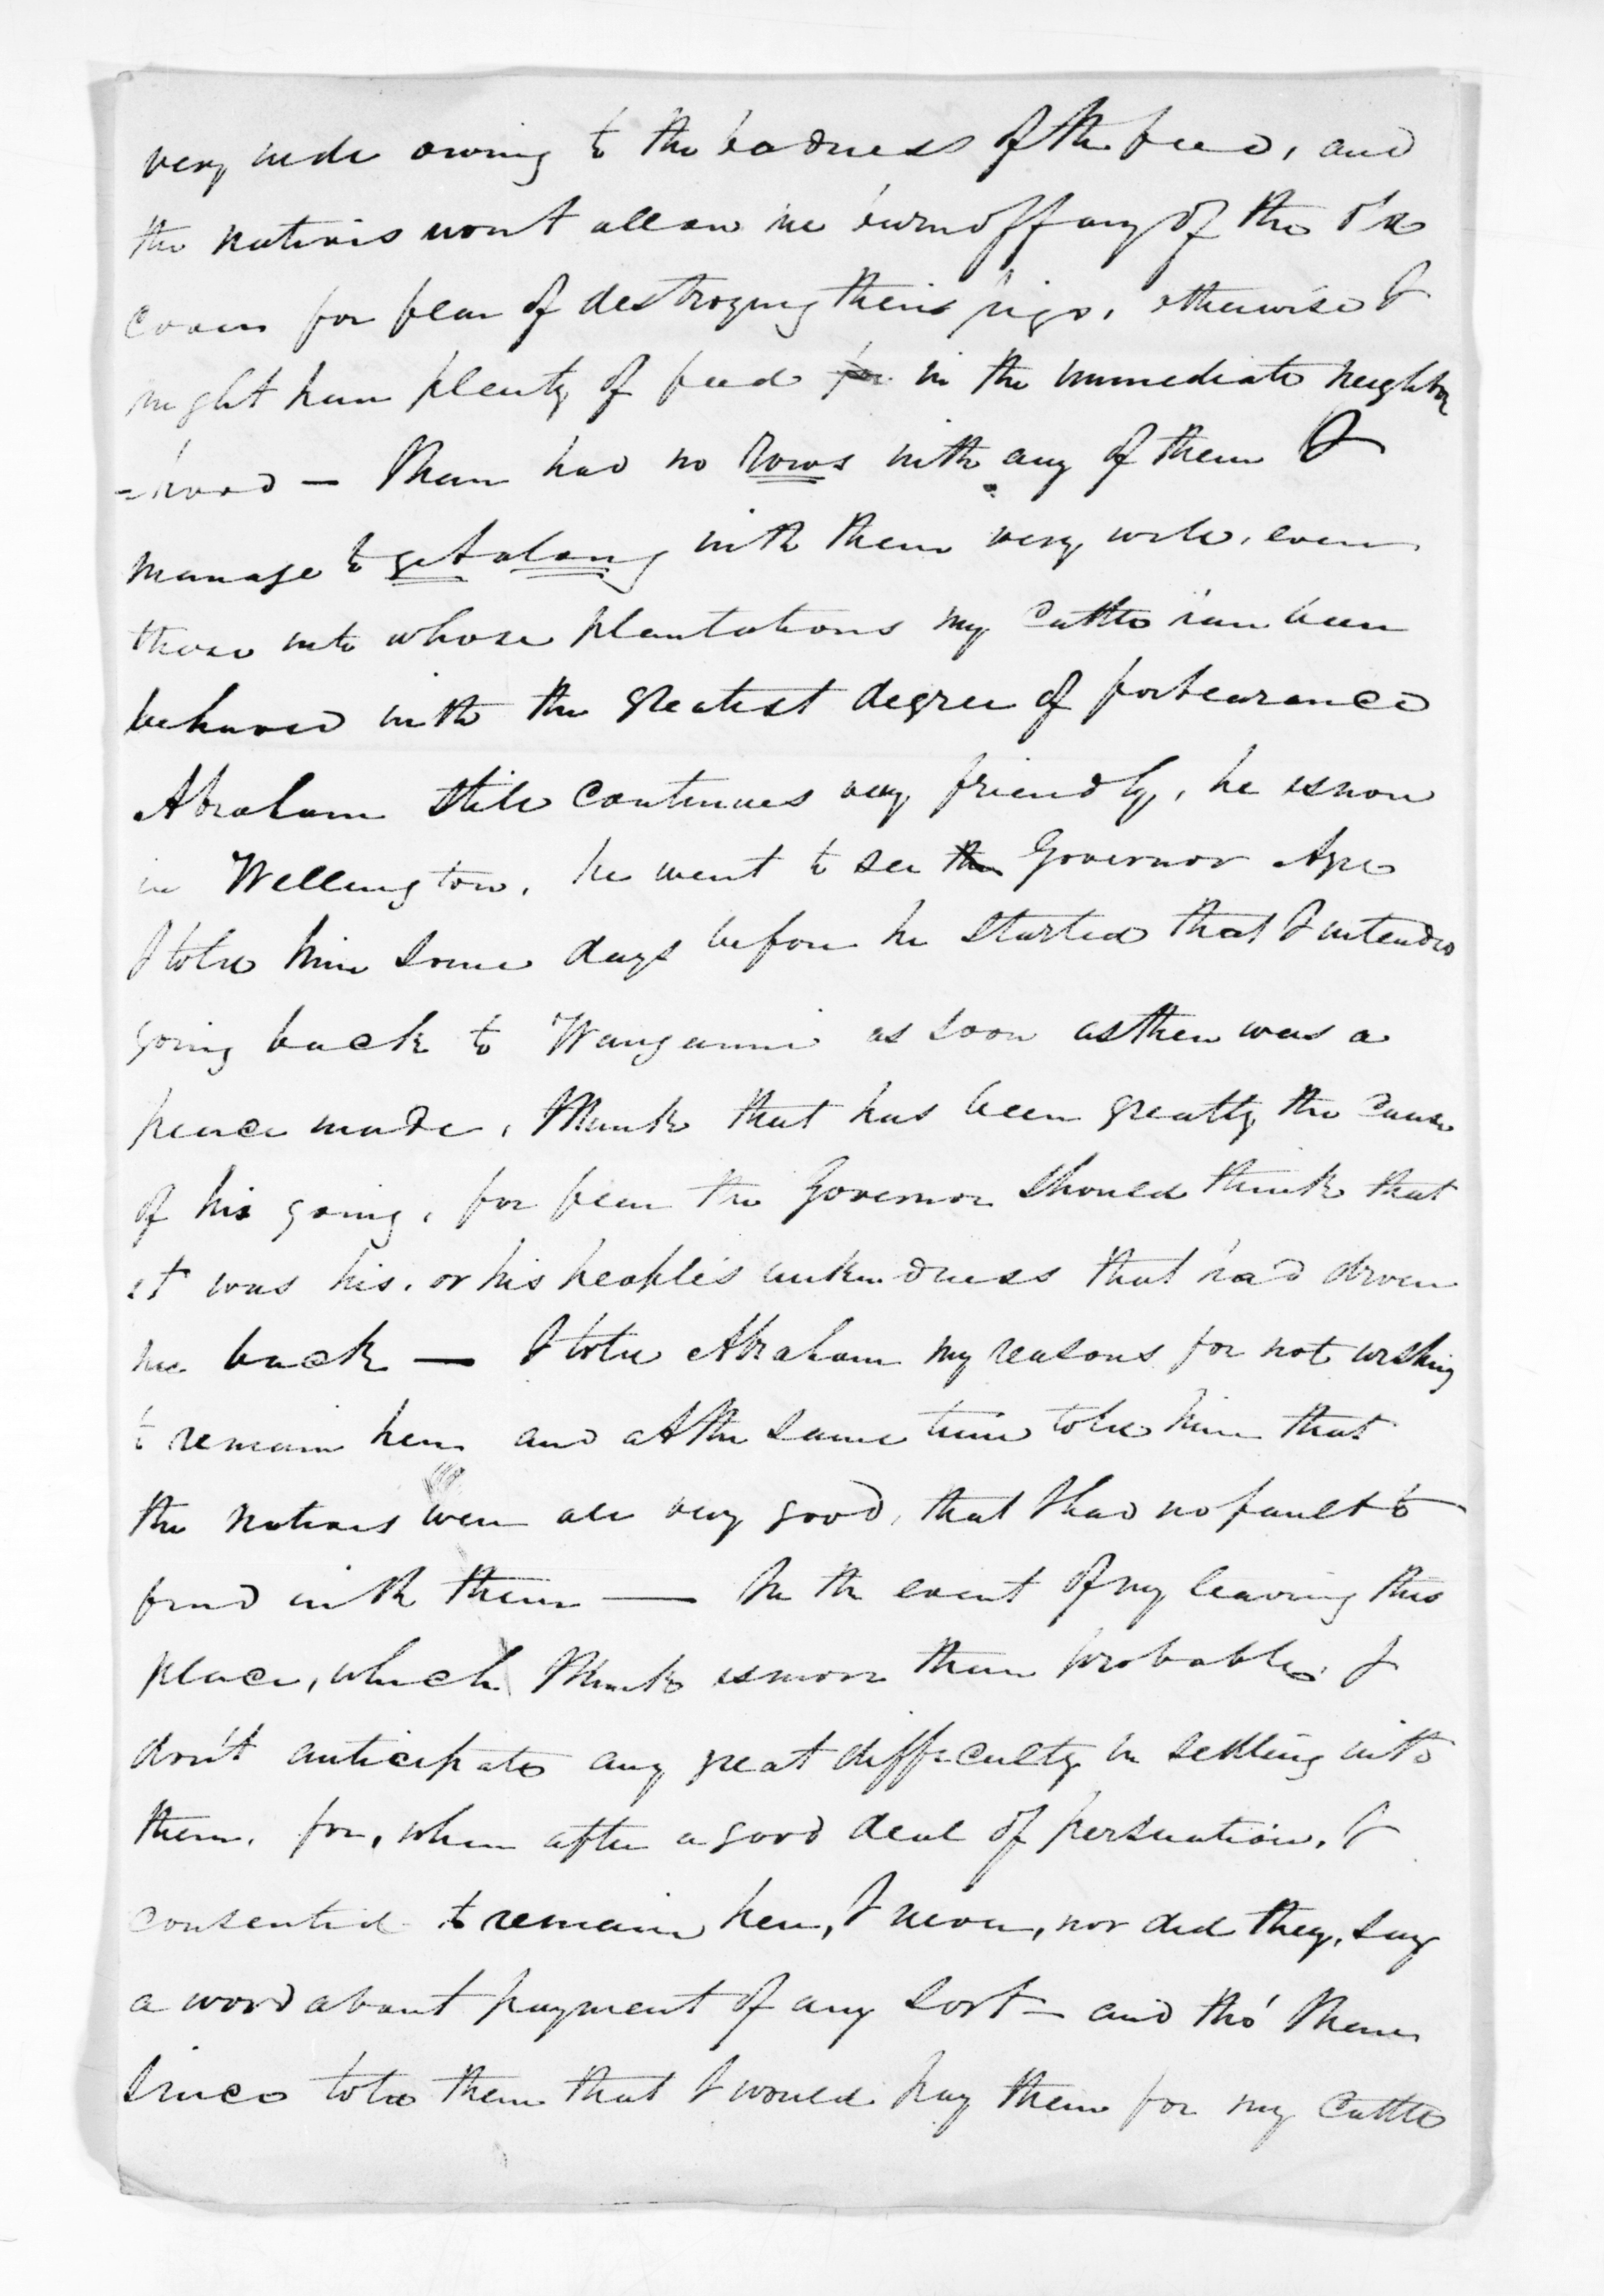 very wide owing to the badness of the feed, and
the natives wont allow me burn off any of the old
cover for fear of destroying their pigs, otherwise I
might have plenty of feed for in the immediate neighbor
=hood — I have had no rows with any of them I
manage to get along with them very well, even
those into whose plantations my cattle have been
behaved with the greatest degree of forbearance
Abraham still continues very friendly, he is now
in Wellington, he went to see the Governor
I told him some days before he started that I intended
going back to Wanganui as soon as there was a
peace made, I think that has been greatly the cause
of his going, for fear the Governor should think that
it was his, or his people's unkindness that had driven
me back — I told Abraham my reasons for not wishing
to remain here and at the same time told him that
the natives were all very good, that I had no fault to
find with them — In the event of my leaving this
place, which I think is more than probable, I
don't anticipate any great difficulty in settling with
them, for, when after a good deal of persuation, I
consented to remain here, I never, nor did they, say
a word about payment of any sort — and tho' I have
since told them that I would pay them for my cattle